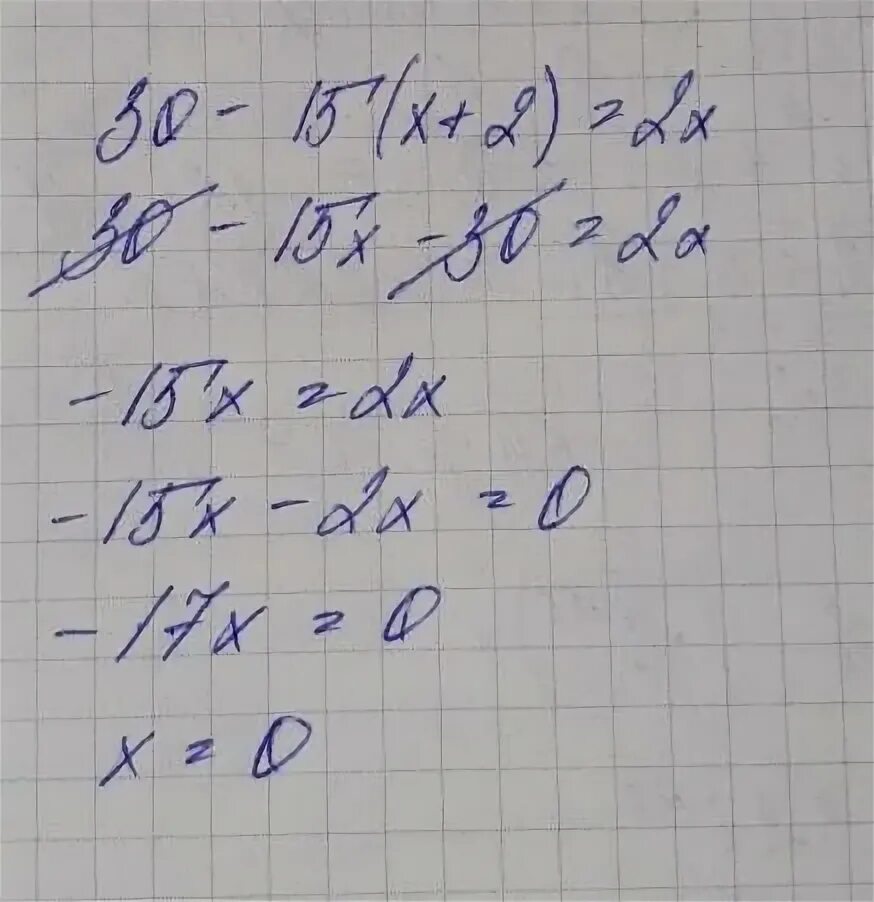 30 - 15(x+2) = 2x
30 - 15x - 30 = 2x
-15x = 2x
-15x - 2x = 0
-17x = 0
x = 0